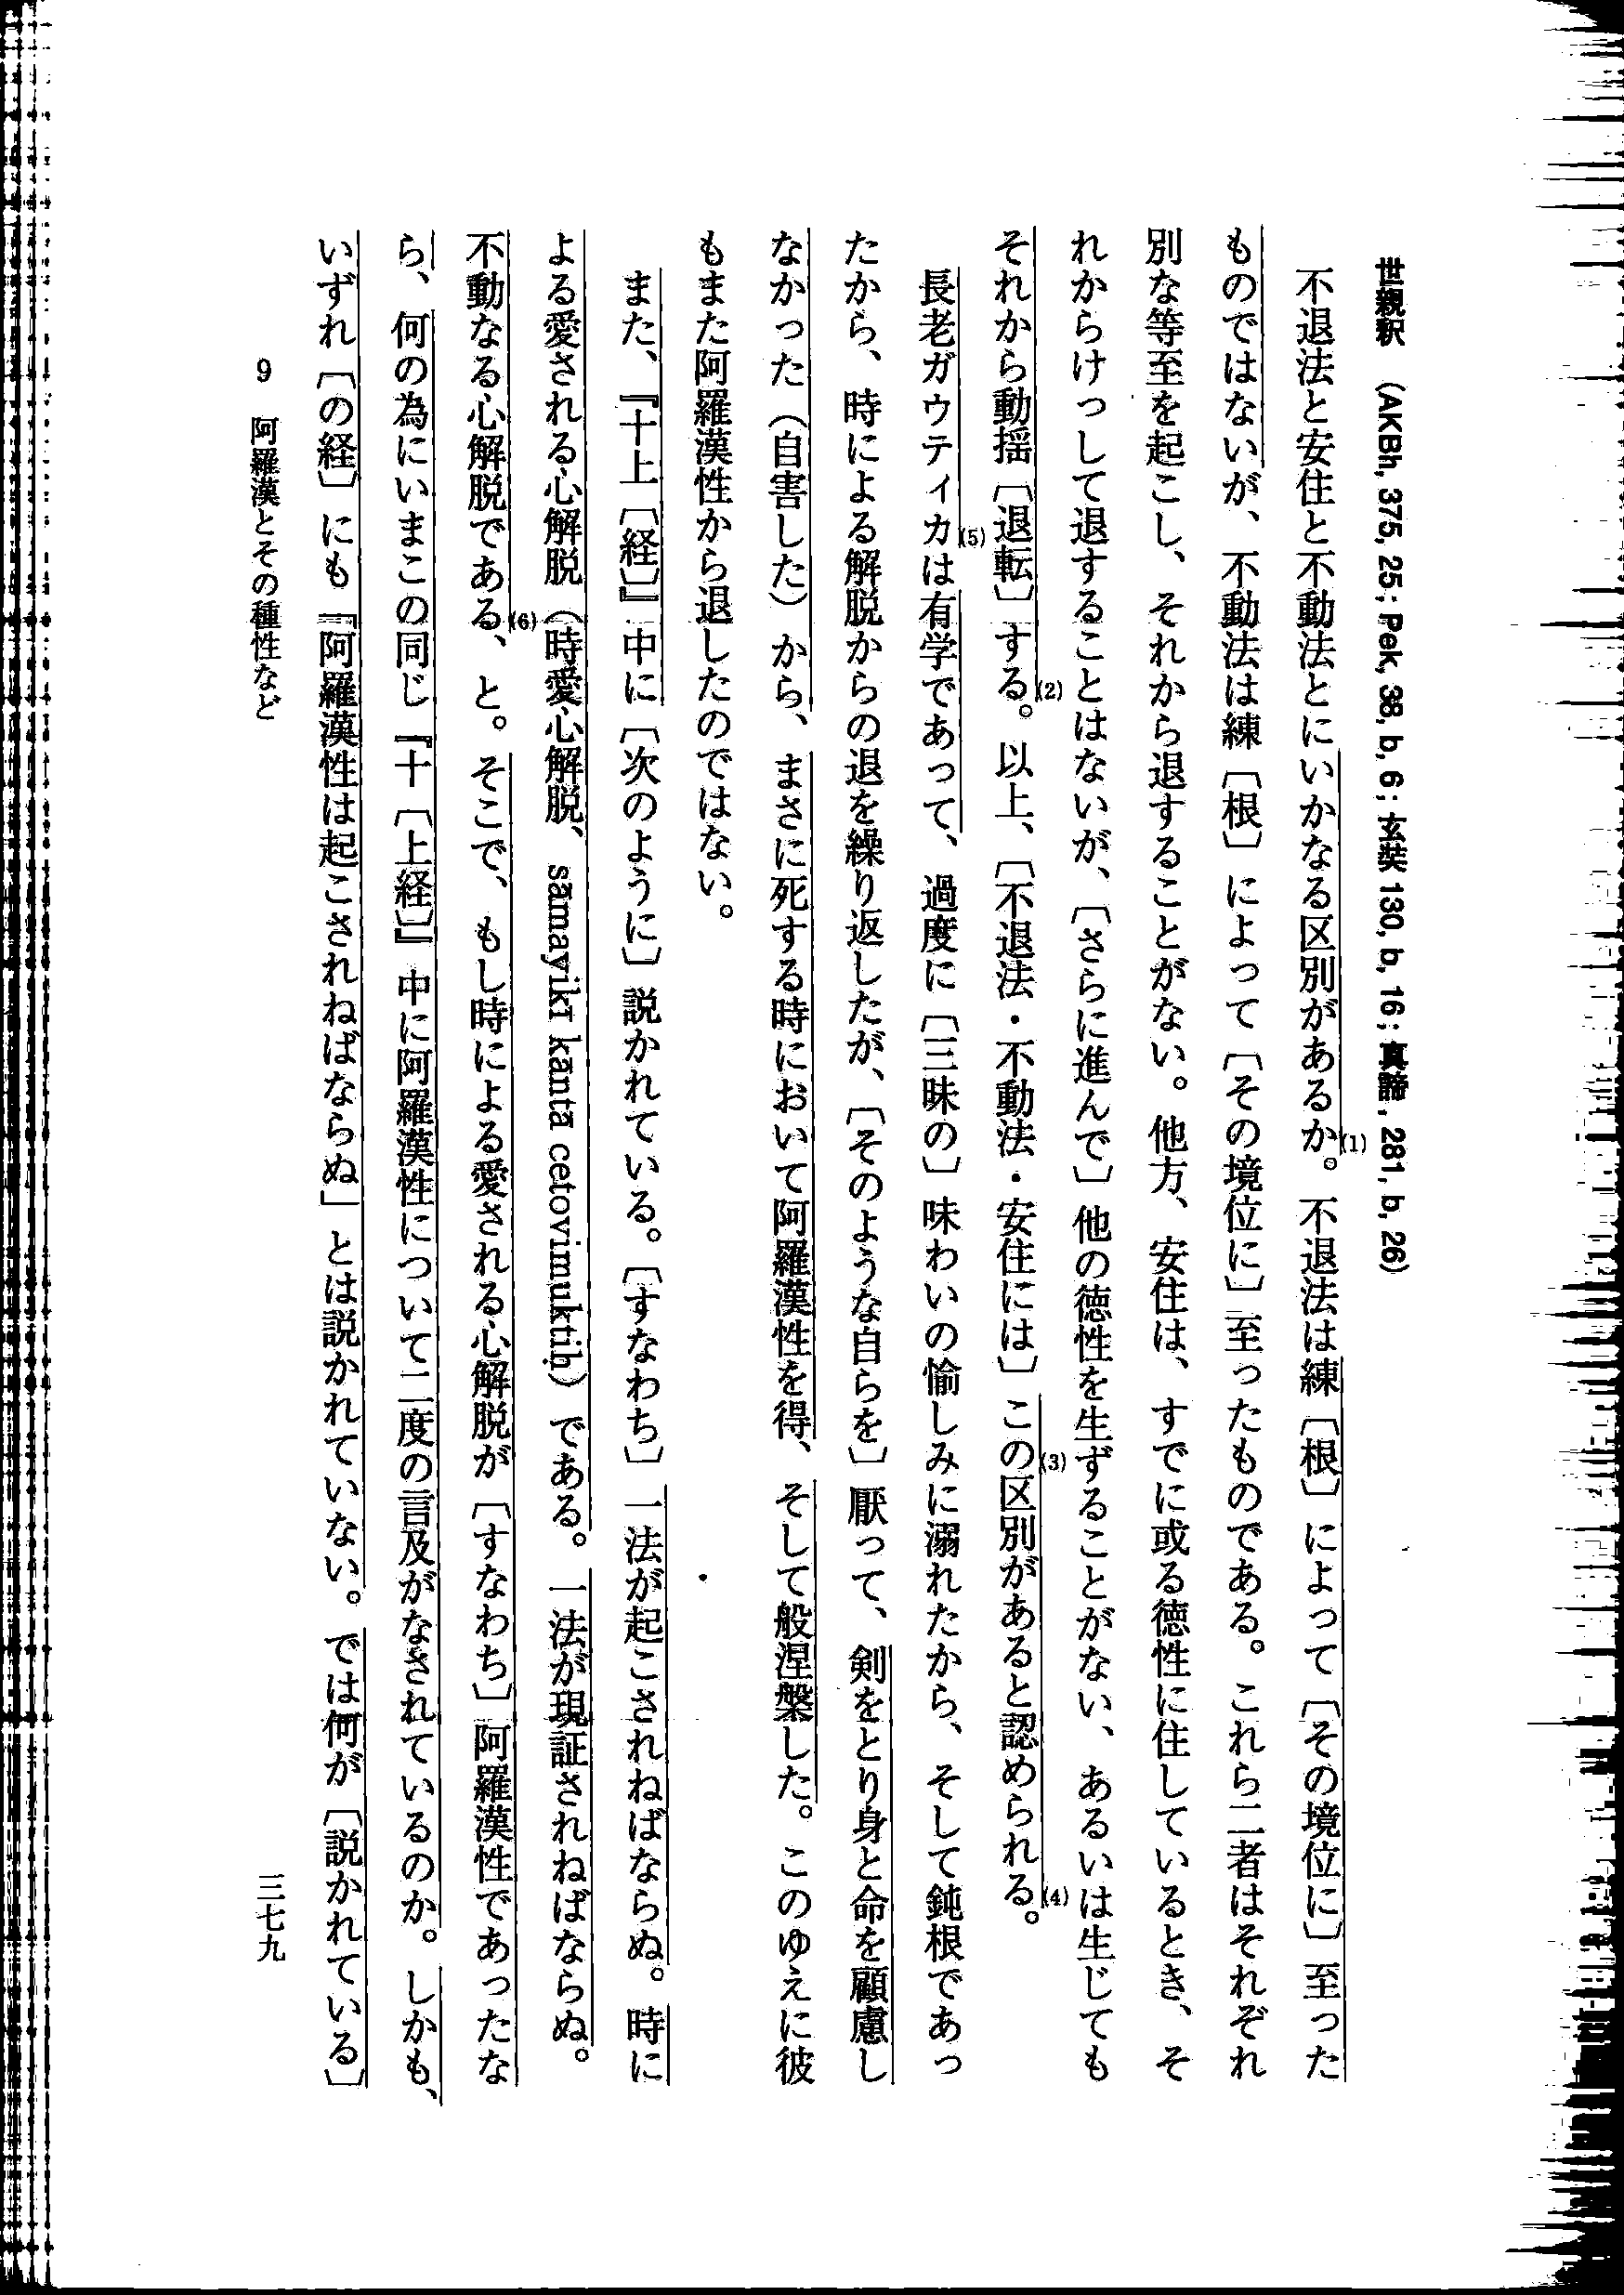 世親釈 （AKBh, 375, 25; Pek, 38, b, 6; 玄奘 130, b, 16; 真諦, 281, b, 26）
不退法と安住と不動法とにいかなる区別があるか。(1)不退法は練〔根〕によって〔その境位に〕至った
ものではないが、不動法は練〔根〕によって〔その境位に〕至ったものである。これら二者はそれぞれ
別な等至を起こし、それから退することがない。他方、安住は、すでに或る徳性に住しているとき、そ
れからけっして退することはないが、〔さらに進んで〕他の徳性を生ずることがない、あるいは生じても
それから動揺〔退転〕する。(2)以上、〔不退法・不動法・安住には〕この(3)区別があると認められる。(4)
長老ガウティカ(5)は有学であって、過度に〔三昧の〕味わいの愉しみに溺れたから、そして鈍根であっ
たから、時による解脱からの退を繰り返したが、〔そのような自らを〕厭って、剣をとり身と命を顧慮し
なかった（自害した）から、まさに死する時において阿羅漢性を得、そして般涅槃した。このゆえに彼
もまた阿羅漢性から退したのではない。
また、『十上〔経〕』中に〔次のように〕説かれている。〔すなわち〕一法が起こされねばならぬ。時に
よる愛される心解脱（時愛心解脱、sāmayikī kāntā cetovimuktiḥ）である。一法が現証されねばならぬ。
不動なる心解脱である、(6)と。そこで、もし時による愛される心解脱が〔すなわち〕阿羅漢性であったな
ら、何の為にいまこの同じ『十〔上経〕』中に阿羅漢性について二度の言及がなされているのか。しかも、
いずれ〔の経〕にも『阿羅漢性は起こされねばならぬ」とは説かれていない。では何が〔説かれている〕
9 阿羅漢とその種性など
三七九